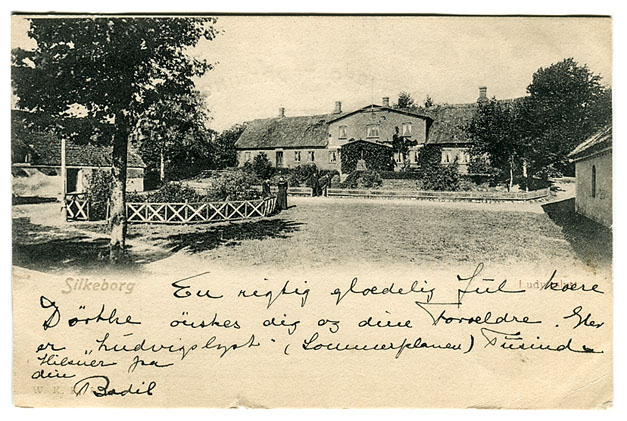 Silkeborg
En rigtig glædelig Jul kære
Dörthe önskes dig og dine Forældre. Her
er "Ludvigslyst" (Sommerplanen) Tusinde
Hilsner fra
din
Bodil